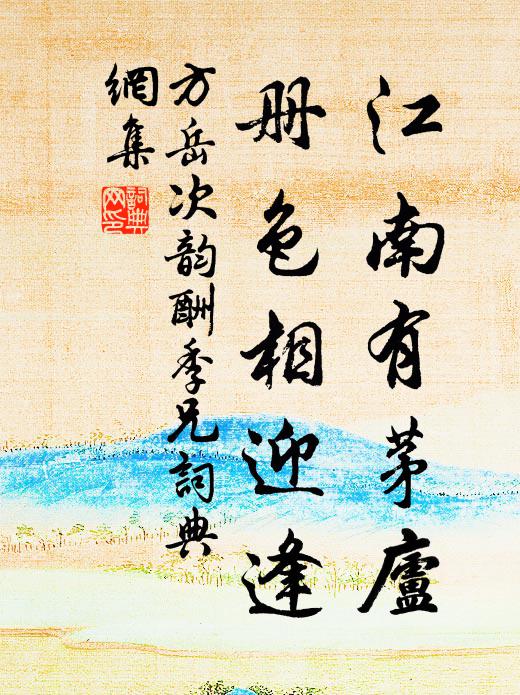 江南有茅廬
册色相迎逢
方岳次韵酬季兄詞典
網集
詞典
网印